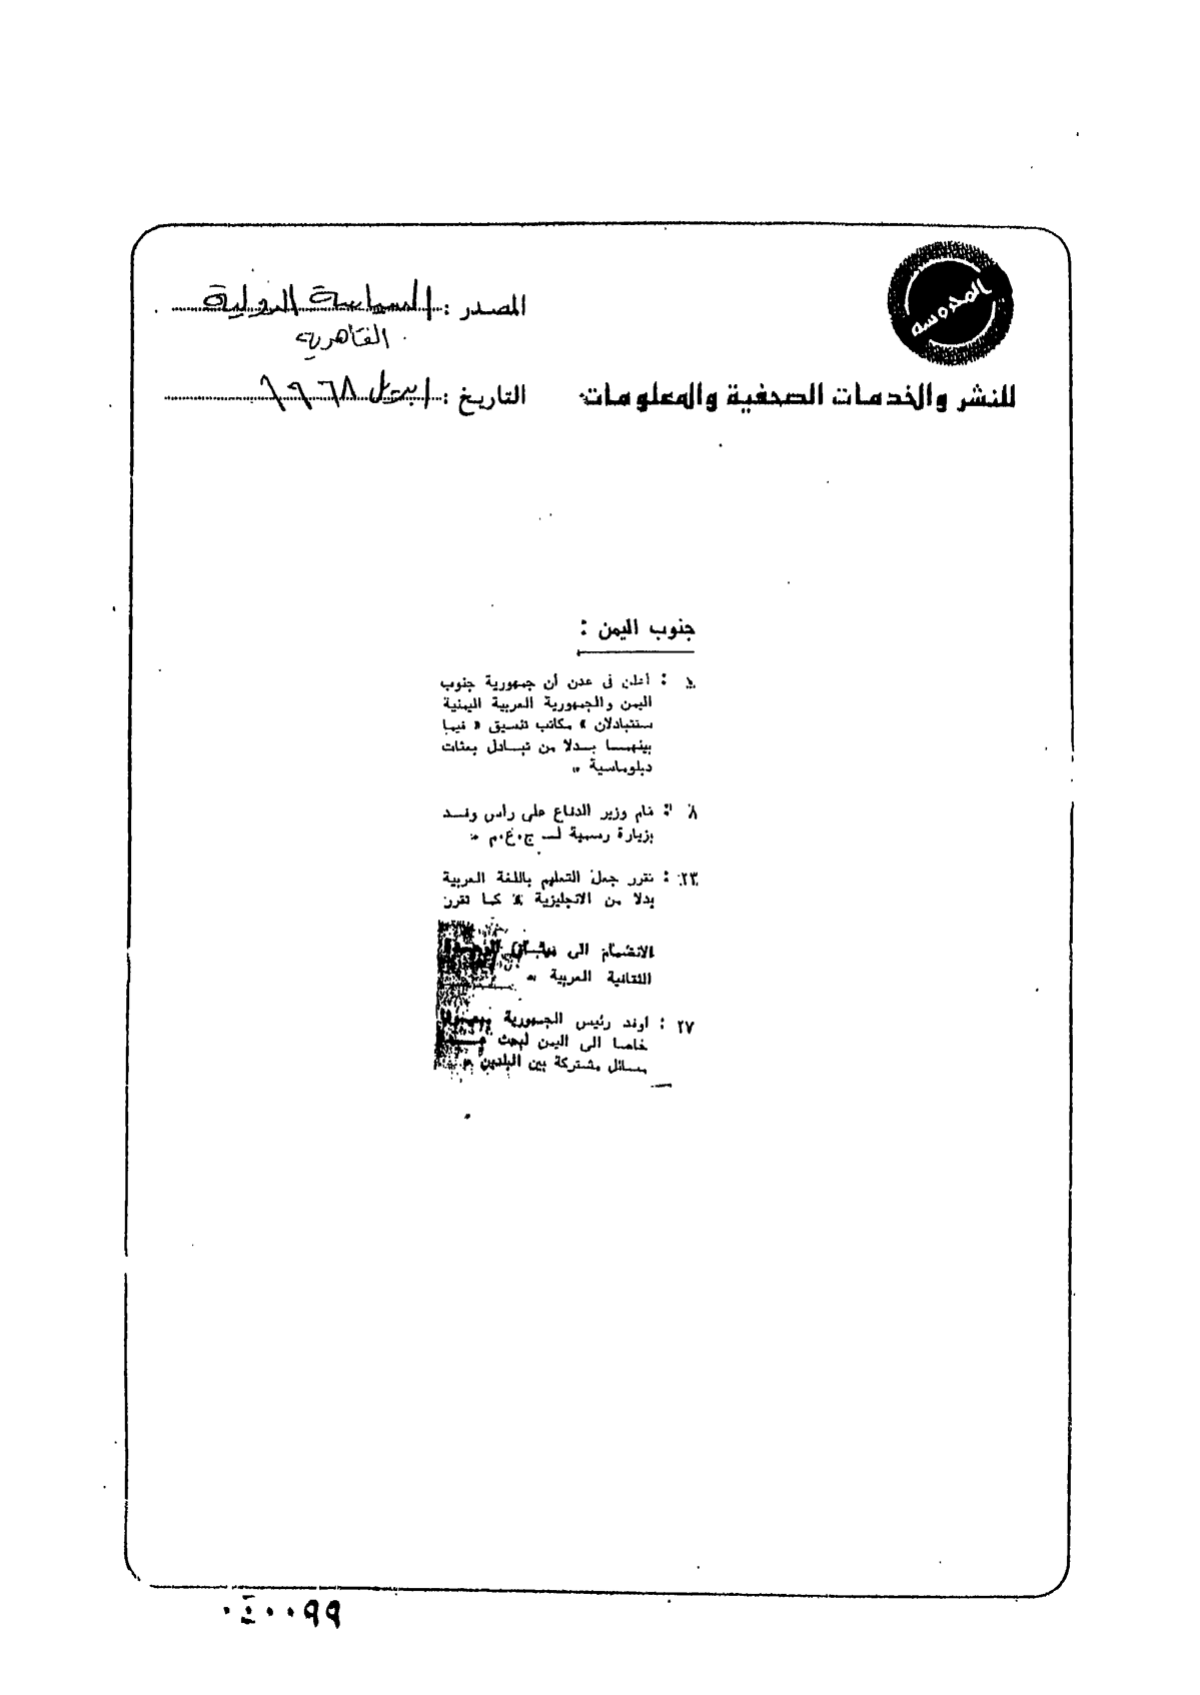 المحروسة
المصدر : السياسة الدولية
القاهرية
للنشر والخدمات الصحفية والمعلومات
التاريخ : ابريل ١٩٦٨
جنوب اليمن :
: أعلن فى عدن أن جمهورية جنوب
اليمن والجمهورية العربية اليمنية
ستتبادلان » مكاتب تنسيق « فيما
بينهمــا بــدلا من تبــادل بعثات
دبلوماسية .
٨ : قام وزير الدفاع على رأس وفــد
بزيارة رسمية لــ ج.ع.م .
٢٣ : تقرر جعل التعليم باللغة العربية
بدلا من الانجليزية كما تقرر
الانضمام الى ميثاق الوحدة
الثقافية العربية .
٢٧ : اوفد رئيس الجمهورية مبعوثا
خاصا الى اليمن لبحث
مسائل مشتركة بين البلدين .
٠٤٠٠٩٩